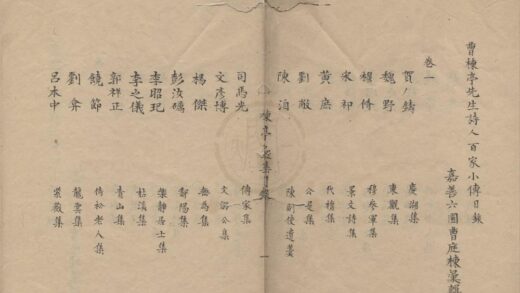 曹棟亭先生詩人百家小傳目錄
嘉善六圃曹庭棟彙輯
卷一
賀鑄 慶湖集
魏野 東觀集
穆脩 穆參軍集
宋祁 景文詩集
黃庶 伐檀集
劉敞 公是集
陳洎 陳副使遺藁
棟亭 集 一
司馬光 傳家集
文彥博 文潞公集
楊傑 無為集
彭汝礪 鄱陽集
李昭玘 樂靜居士集
李之儀 姑溪集
郭祥正 青山集
饒節 倚松老人集
劉弇 龍雲集
呂本中 紫薇集